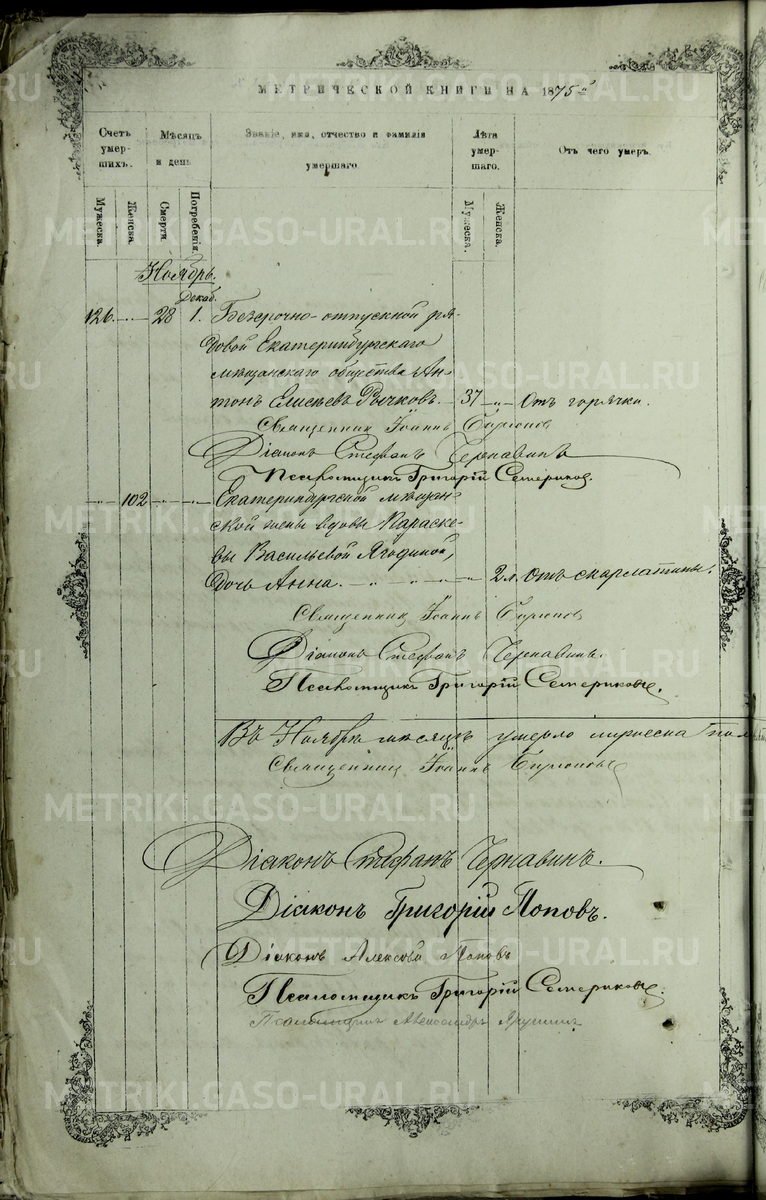 МЕТРИЧЕСКОЙ КНИГИ НА 1875 г.
Счетъ умершихъ.
Мѣсяцъ и день
Званіе, имя, отчество и фамилія умершаго.
Лѣта умершаго.
Отъ чего умеръ.
Мужеска.
Женска.
Смерти.
Погребенія.
Мужеска.
Женска.
Ноябрь.
Декаб.
126. 28 1. Безсрочно-отпускной ря-
довой Екатеринбургскаго
мѣщанскаго общества Ан-
тонъ Елисѣевъ Рычковъ. 37 Отъ горячки.
Священникъ Іоаннъ
Діаконъ Стефанъ Чернавинъ
Псаломщикъ Григорій Семериковъ.
102 Екатеринбургской мѣщан-
ской жены вдовы Параске-
вы Васильевой Ягодиной,
дочь Анна. 2 л. Отъ скарлатины.
Священникъ Іоаннъ
Діаконъ Стефанъ Чернавинъ.
Псаломщикъ Григорій Семериковъ.
Въ Ноябрѣ мѣсяцѣ умерло мужеска пола
Священникъ Іоаннъ
Діаконъ Стефанъ Чернавинъ.
Діаконъ Григорій Поповъ.
Діаконъ Алексѣй Поповъ
Псаломщикъ Григорій Семериковъ.
Псаломщикъ Александръ
METRIKI.GASO-URAL.RU